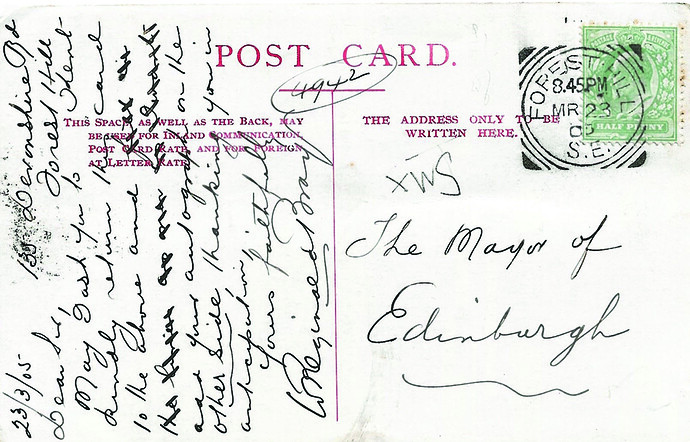 POST CARD.
4942
THIS SPACE, AS WELL AS THE BACK, MAY
BE USED FOR INLAND COMMUNICATION.
POST CARD RATE, AND FOR FOREIGN
AT LETTER RATE.
THE ADDRESS ONLY TO BE
WRITTEN HERE.
FOREST HILL
8.45PM
MR 23
05
S.E.
HALF PENNY
XWS
The Mayor of
Edinburgh
139 Devonshire Rd
Forest Hill
23/3/05 Kent
Dear Sir,
May I ask you to
kindly return this card
to the above and
add your autograph on the
other side thanking you in
anticipation
Yours faithfully
W Reginald Bray